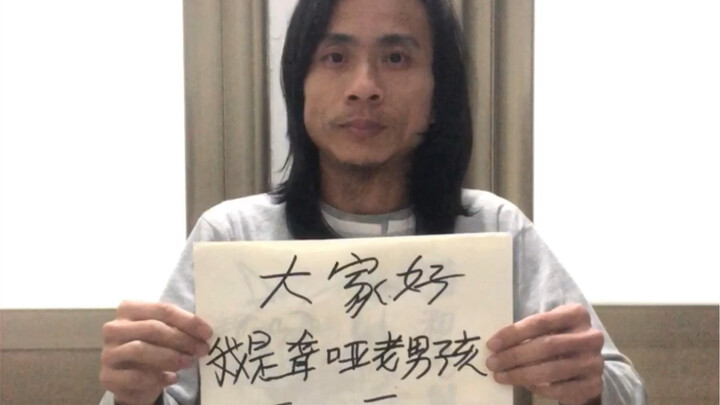 大家好
我是聋哑老男孩